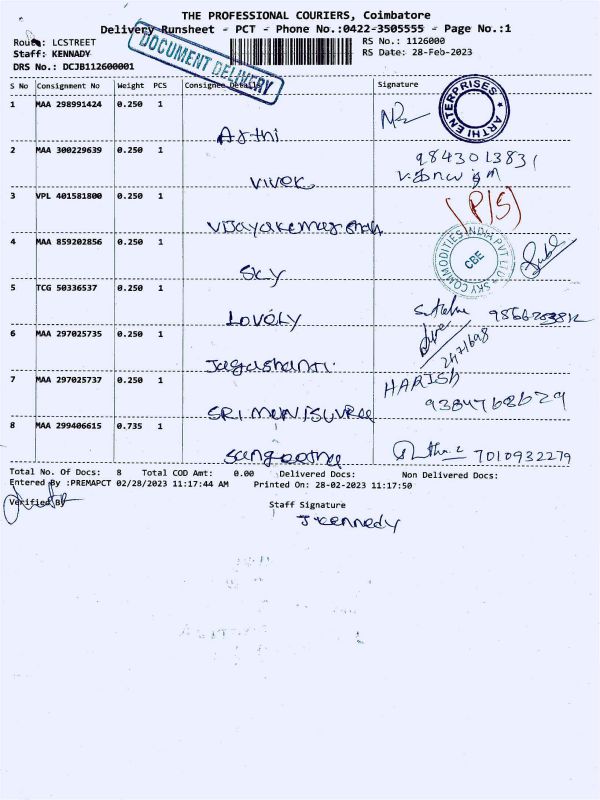 THE PROFESSIONAL COURIERS, Coimbatore
Delivery Runsheet - PCT - Phone No.:0422-3505555 - Page No.:1
Route: LCSTREET
RS No.: 1126000
Staff: KENNADY
RS Date: 28-Feb-2023
DRS No.: DCJB112600001
DOCUMENT DELIVERY
S No Consignment No Weight PCS Consignee Details Signature
1 MAA 298991424 0.250 1
Arthi
ARTHI ENTERPRISES
2 MAA 300229639 0.250 1
9843013831
Vivek
3 VPL 401581800 0.250 1
(P/S)
Vijayakumar
4 MAA 859202856 0.250 1
SKY COMMODITIES INDIA PVT LTD
CBE
Sky
5 TCG 50336537 0.250 1
Lovely
6 MAA 297025735 0.250 1
2471698
Jagashanti.
7 MAA 297025737 0.250 1
HARISH
SRI
8 MAA 299406615 0.735 1
Sangeetha
7010932279
Total No. Of Docs: 8 Total COD Amt: 0.00 Delivered Docs: Non Delivered Docs:
Entered By :PREMAPCT 02/28/2023 11:17:44 AM Printed On: 28-02-2023 11:17:50
Verified By
Staff Signature
J. Kennedy